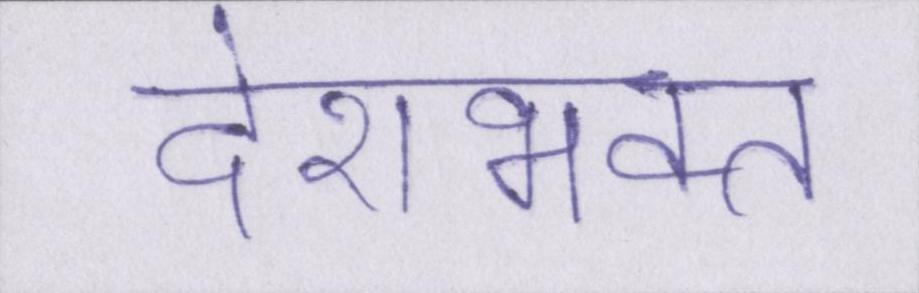 देशभक्त